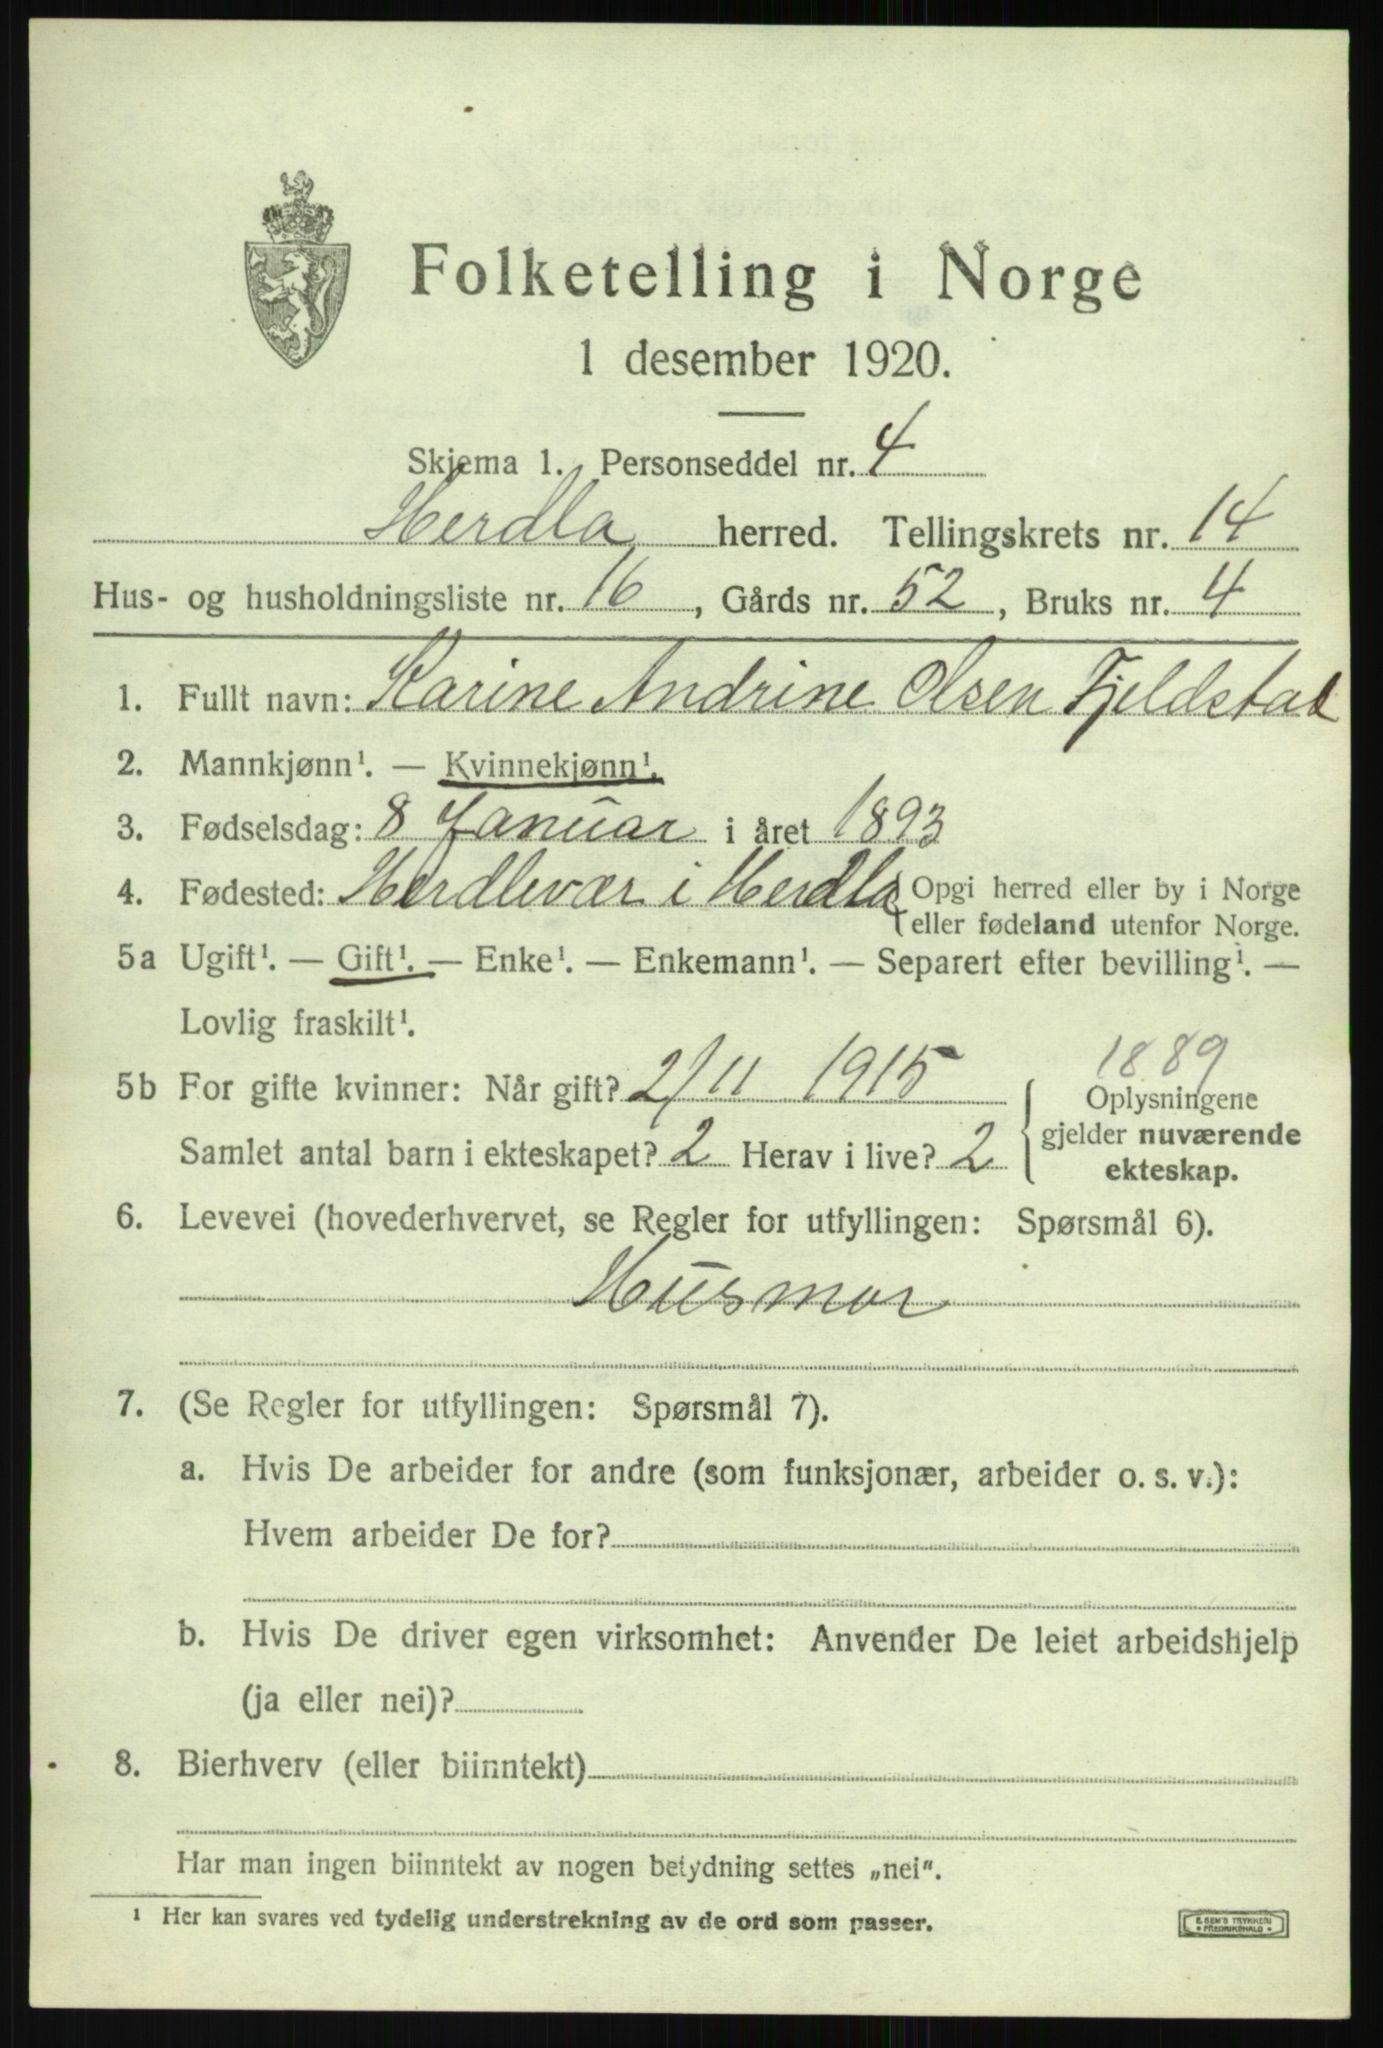 Folketelling i Norge
1 desember 1920.
Skjema 1. Personseddel nr. 4
Herdla herred. Tellingskrets nr. 14
Hus- og husholdningsliste nr. 16, Gårds nr. 52, Bruks nr. 4
1. Fullt navn: Karine Andrine Olsen Fjeldstad
2. Mannkjønn¹. — Kvinnekjønn¹.
3. Fødselsdag: 8 Januar i året 1893
4. Fødested: Herdlevær i Herdla { Opgi herred eller by i Norge
eller fødeland utenfor Norge.
5a Ugift¹. — Gift¹. — Enke¹. — Enkemann¹. — Separert efter bevilling¹. —
Lovlig fraskilt¹.
1889
5b For gifte kvinner: Når gift? 2/11 1915 { Oplysningene
gjelder nuværende
Samlet antal barn i ekteskapet? 2 Herav i live? 2 ekteskap.
6. Levevei (hovederhvervet, se Regler for utfyllingen: Spørsmål 6).
Husmor
7. (Se Regler for utfyllingen: Spørsmål 7).
a. Hvis De arbeider for andre (som funksjonær, arbeider o. s. v.):
Hvem arbeider De for?
b. Hvis De driver egen virksomhet: Anvender De leiet arbeidshjelp
(ja eller nei)?
8. Bierhverv (eller biinntekt)
Har man ingen biinntekt av nogen betydning settes „nei".
¹ Her kan svares ved tydelig understrekning av de ord som passer.
E. SEM'S TRYKKERI
• FREDRIKSHALD •